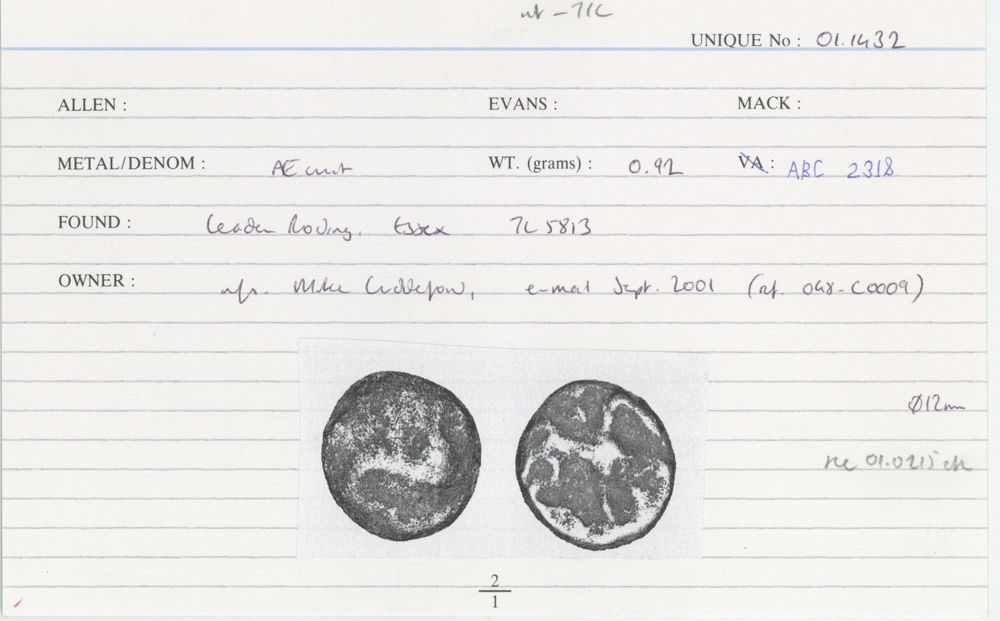 UNIQUE No : 01.1432
ALLEN : EVANS : MACK :
METAL/DENOM : AE unit WT. (grams) : 0.92 VA : ABC 2318
FOUND : Leaden Roding, Essex TL 5813
OWNER : Mike Cuddeford, e-mail Sept. 2001 (ref. 048-C0009)
Ø12mm
01.0215
2
1